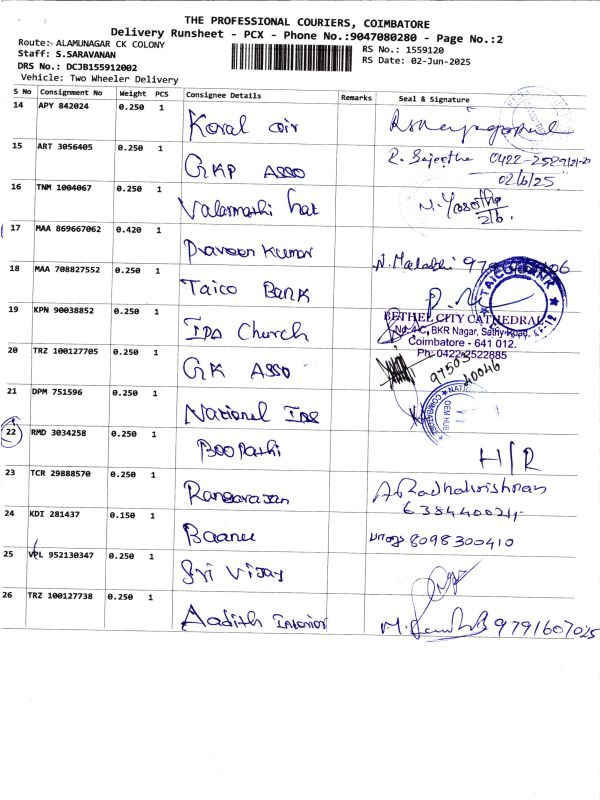 THE PROFESSIONAL COURIERS, COIMBATORE
Delivery Runsheet - PCX - Phone No.:9047080280 - Page No.:2
Route:- ALAMUNAGAR CK COLONY
RS No.: 1559120
Staff: S.SARAVANAN
RS Date: 02-Jun-2025
DRS No.: DCJB155912002
Vehicle: Two Wheeler Delivery
S No Consignment No Weight PCS Consignee Details Remarks Seal & Signature
14 APY 842024 0.250 1 Koval coir
15 ART 3056405 0.250 1 GKP ASSO R. Sajeetha 0422-
02/6/25
16 TNM 1004067 0.250 1 Valarmathi hat N. Yasotha
2/6
17 MAA 869667062 0.420 1 Praveen Kumar N. Malathi
18 MAA 708827552 0.250 1 Taico Bank TAICO BANK
19 KPN 90038852 0.250 1 IPA Church BETHEL CITY CATHEDRAL
No:4-C, BKR Nagar, Sathy Road,
Coimbatore - 641 012.
Ph: 0422-2522885
20 TRZ 100127705 0.250 1 GK ASSO 97503 40046
21 DPM 751596 0.250 1 National Ins
22 RMD 3034258 0.250 1 Boopathi H/R
23 TCR 29888570 0.250 1 Rangarajan A. Radhakrishnan
24 KDI 281437 0.150 1 Baanu 8098300410
25 VPL 952130347 0.250 1 Sri Vijay
26 TRZ 100127738 0.250 1 Aadith Interior 9791607025